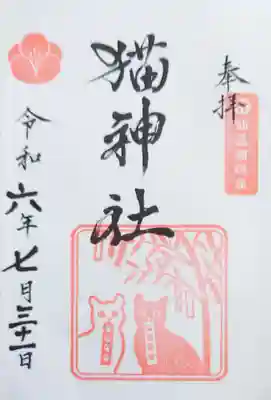 奉拝
猫神社
令和六年七月三十一日